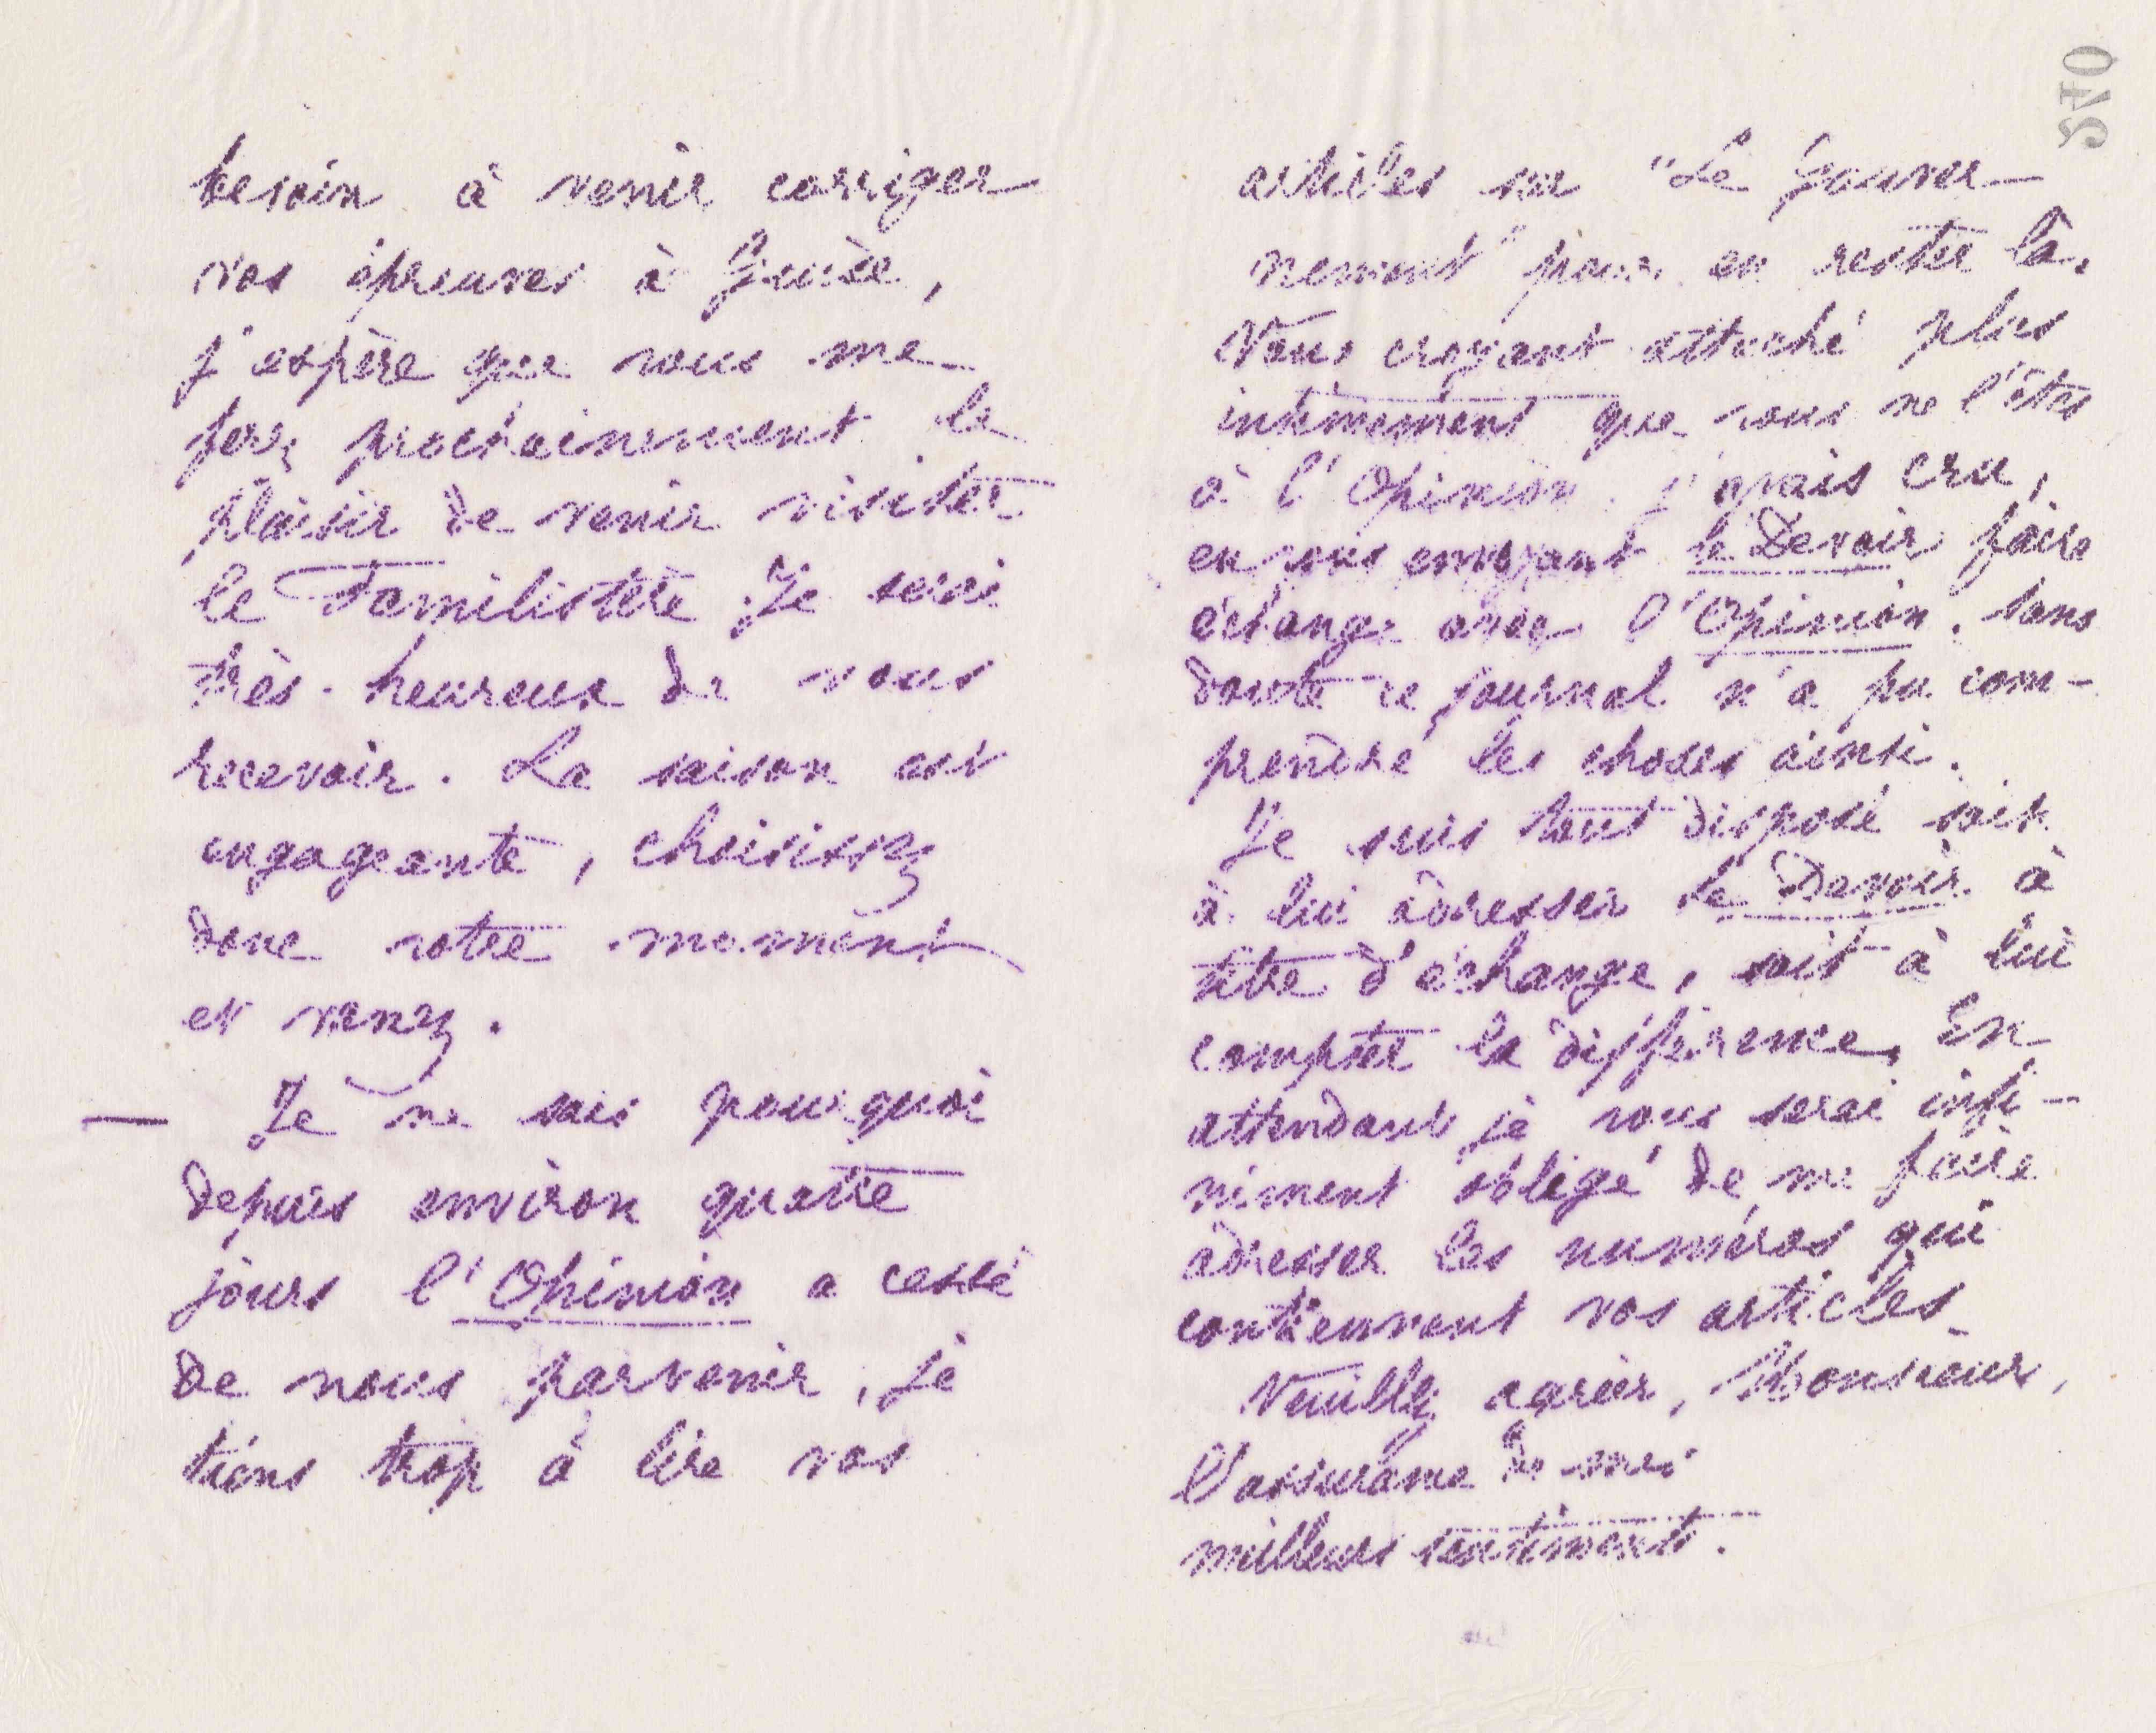 besoin à venir corriger
vos épreuves à Guise,
j'espère que vous me
ferez prochainement le
plaisir de venir visiter
le Familistère. Je serai
très-heureux de vous
recevoir. La saison est
engageante, choisissez
donc votre moment
et venez.
— Je ne sais pourquoi
depuis environ quatre
jours l'Opinion a cessé
de nous parvenir, je
tiens trop à lire vos
articles sur "Le Gouver-
nement" pour en rester là.
Vous croyant attaché plus
intimement que vous ne l'êtes
à l'Opinion. j'avais cru,
en vous envoyant le Devoir faire
échange avec l'Opinion. Sans
doute ce journal n'a pu com-
prendre les choses ainsi.
Je suis tout disposé soit
à lui adresser le Devoir à
titre d'échange, soit à lui
compter la différence. En
attendant je vous serai infi-
niment obligé de me faire
adresser les numéros qui
contiennent vos articles
Veuillez agréer, Monsieur,
l'assurance de mes
meilleurs sentiments.
540